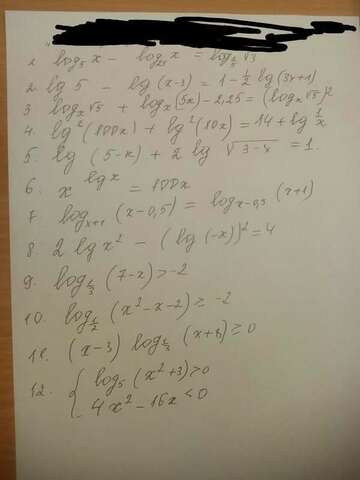 1. log₅ x − log₂₅ x = log_{1/5} √3
2. lg 5 − lg (x−3) = 1 − ½ lg (3x+1)
3 logₓ √5 + logₓ (5x) − 2,25 = (logₓ √5)²
4. lg² (100x) + lg² (10x) = 14 + lg 1/x
5. lg (5−x) + 2 lg √(3−x) = 1.
6. x^{lg x} = 100x
7 log_{x+1} (x−0,5) = log_{x−0,5} (x+1)
8 2 lg x² − (lg (−x))² = 4
9. log_{2/3} (7−x) > −2
10. log_{1/2} (x²−x−2) ≥ −2
11. (x−3) log_{1/3} (x+8) ≥ 0
12. { log₅ (x²+3) > 0
4x² − 16x < 0